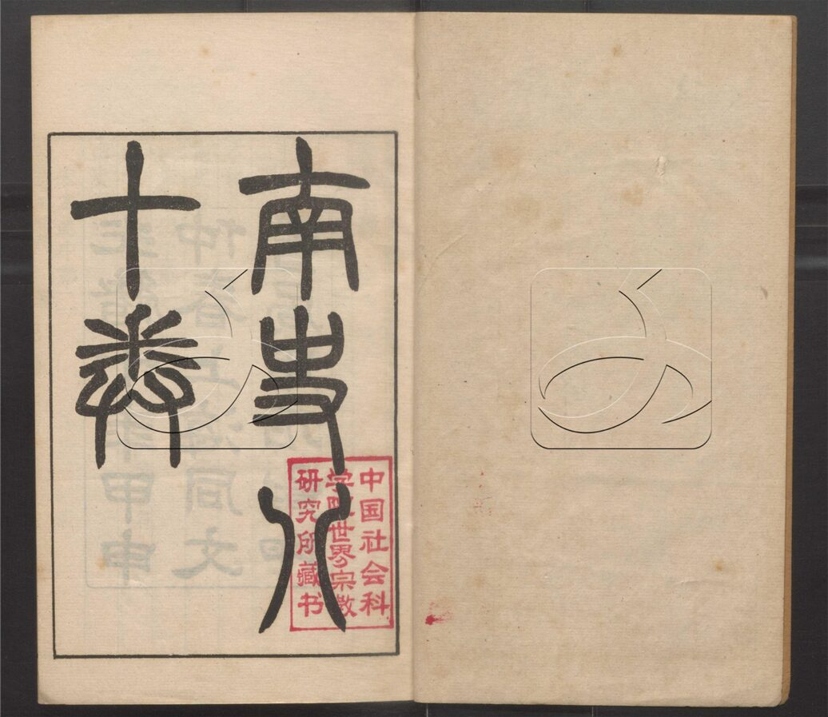 南史八
十卷
中国社会科
学院世界宗教
研究所藏书